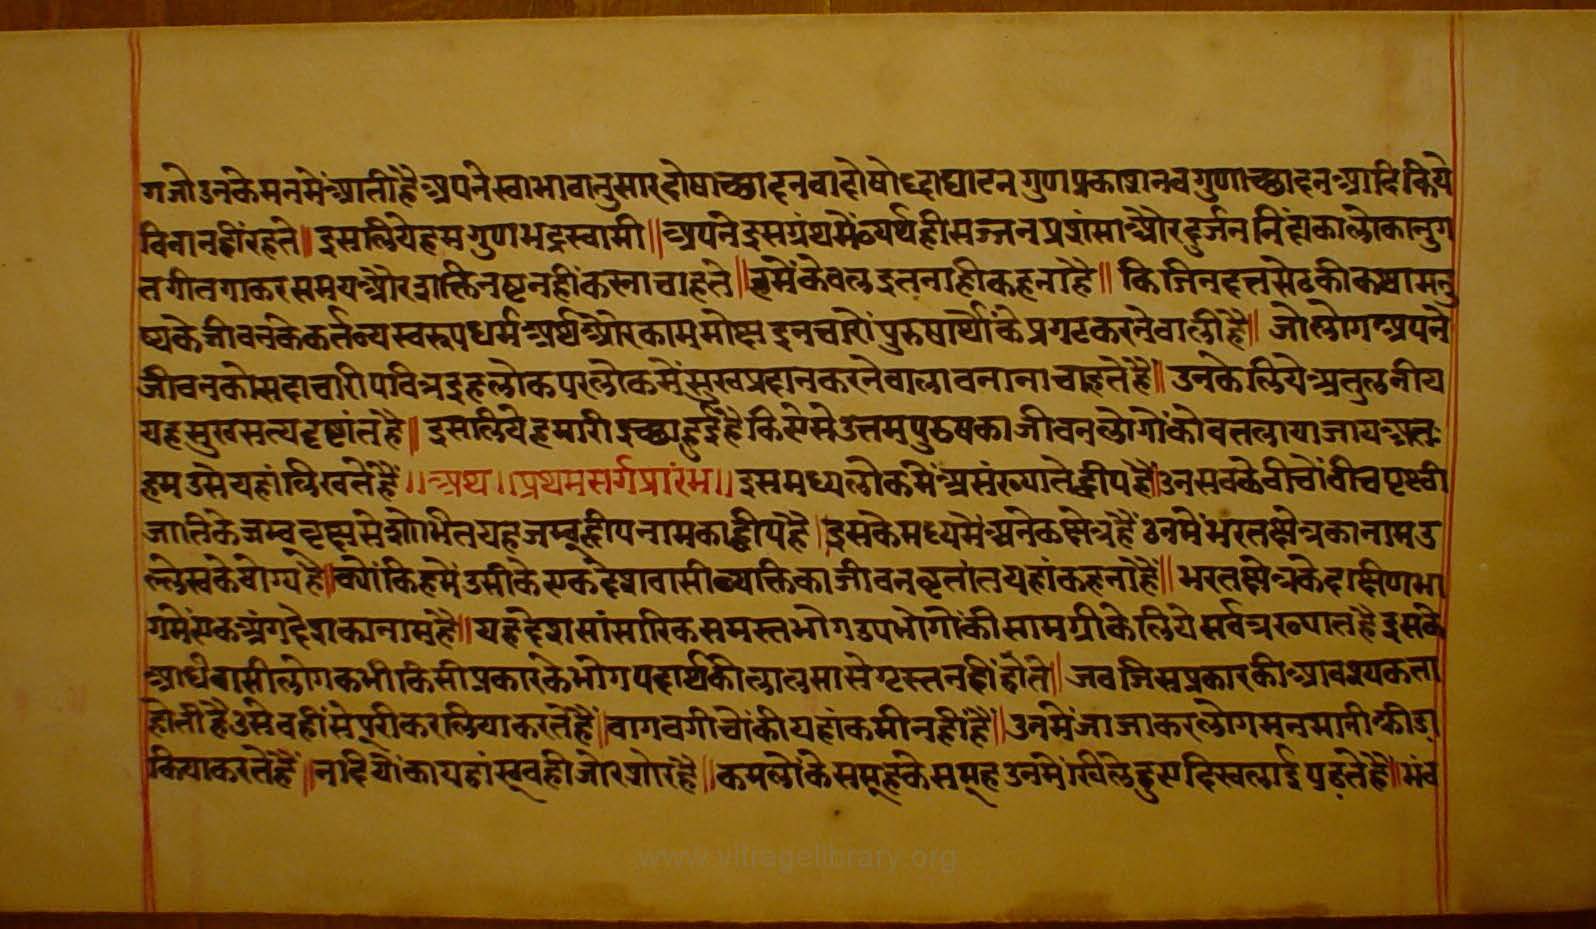 गजोउनकेमनमेंआतीहैअपनेस्वाभावानुसारदोषाच्छादनवादोषोद्घाटनगुणप्रकाशनवगुणाच्छादनआदिकिये
विनानहींरहते॥इसलियेहमगुणभद्रस्वामी॥अपनेइसग्रंथमेंव्यर्थहीसज्जनप्रशंसाऔरदुर्जननिंदाकालोकानुग
तगीतगाकरसमयऔरशक्तिनष्टनहींकरनाचाहते॥हमेंकेवलइतनाहीकहनाहै॥किजिनदत्तसेठकीकथामनु
ष्यकेजीवनकेकर्तव्यस्वरूपधर्मअर्थऔरकाममोक्षइनचारोंपुरुषार्थोंकेप्रगटकरनेवालीहै॥जोलोगअपने
जीवनकोसदाचारीपवित्रइहलोकपरलोकमेंसुखप्रदानकरनेवालावनानाचाहतेहै॥उनकेलियेअतुलनीय
यहसुखसत्यदृष्टांतहै॥इसलियेहमारीइच्छाहुईहैकिसेसेउत्तमपुरुषकाजीवनलोगोंकोवतलायाजायअतः
हमउसेयहांलिखतेहैं॥अथ॥प्रथमसर्गप्रारंभ॥इसमध्यलोकमेंअसंख्यातेद्वीपहैं॥उनसवकेवीचोंवीचपृथ्वी
जातिकेजम्बवृक्षसेशोभितयहजम्बूद्वीपनामकाद्वीपहै॥इसकेमध्यमेंअनेकक्षेत्रहैंउनमेंभरतक्षेत्रकानामउ
ल्लेखकेयोग्यहै॥क्योंकिहमेंउसीकेसकदेशवासीव्यक्तिकाजीवनवृतांतयहांकहनाहैं॥भरतक्षेत्रकेदक्षिणभा
गमेंएकअंगदेशकानामहै॥यहदेशसांसारिकसमस्तभोगउपभोगोंकीसामग्रीकेलियेसर्वत्रख्यातहैइसके
आधिवासीलोगकभीकिसीप्रकारकेभोगपदार्थकीलालसासेगृस्तनहींहोते॥जवजिसप्रकारकीआवश्यकत्ता
होतीहैउसेवहींसेपूरीकरलियाकरतेहैं॥वागवगीचोंकीयहांकमीनहींहैं॥उनमेंजाजाकरलोगमनमानीक्रीडा
कियाकरतेहैं॥नदियोंकायहांखूवहीजोरशोरहै॥कमलोंकेसमूहकेसमूहउनमेंखिलेहुएदिखलाईपढ़तेहै॥भंव
www.vitragelibrary.org